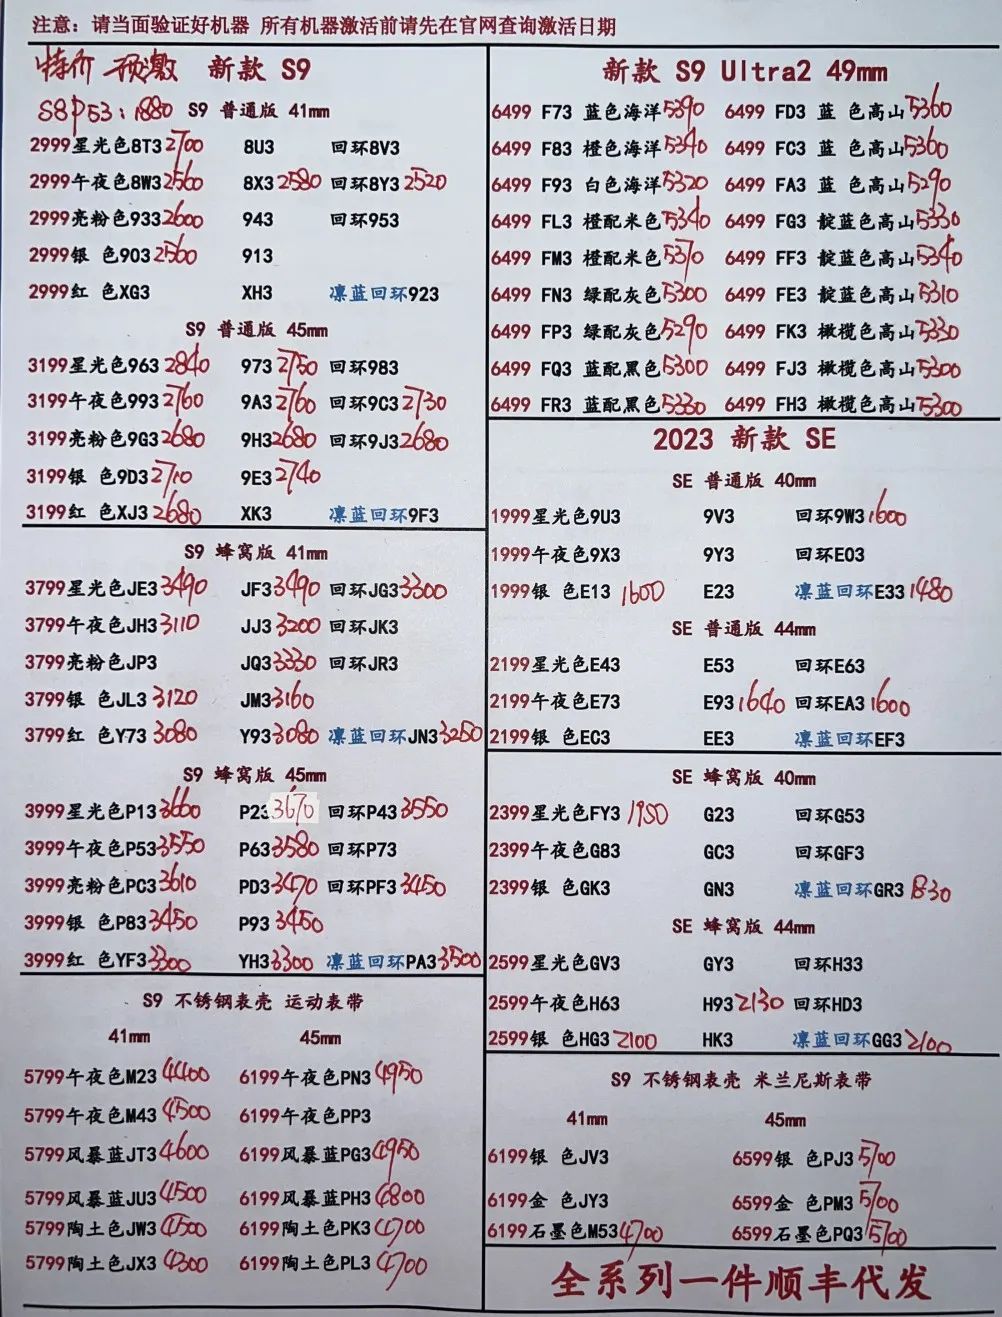 注意：请当面验证好机器 所有机器激活前请先在官网查询激活日期
特价 预激 新款 S9
S8P53：1880 S9 普通版 41mm
2999星光色8T3 2700 8U3 回环8V3
2999午夜色8W3 2560 8X3 2580 回环8Y3 2520
2999亮粉色933 2600 943 回环953
2999银 色903 2560 913
2999红 色XG3 XH3 凛蓝回环923
S9 普通版 45mm
3199星光色963 2840 973 2750 回环983
3199午夜色993 2760 9A3 2760 回环9C3 2730
3199亮粉色9G3 2680 9H3 2680 回环9J3 2680
3199银 色9D3 2710 9E3 2740
3199红 色XJ3 2680 XK3 凛蓝回环9F3
S9 蜂窝版 41mm
3799星光色JE3 3490 JF3 3490 回环JG3 3300
3799午夜色JH3 3110 JJ3 3200 回环JK3
3799亮粉色JP3 JQ3 3330 回环JR3
3799银 色JL3 3120 JM3 3160
3799红 色Y73 3080 Y93 3080 凛蓝回环JN3 3250
S9 蜂窝版 45mm
3999星光色P13 3660 P23 3670 回环P43 3550
3999午夜色P53 3550 P63 3580 回环P73
3999亮粉色PC3 3610 PD3 3470 回环PF3 3450
3999银 色P83 3450 P93 3450
3999红 色YF3 3300 YH3 3300 凛蓝回环PA3 3500
S9 不锈钢表壳 运动表带
41mm 45mm
5799午夜色M23 4400 6199午夜色PN3 4950
5799午夜色M43 4500 6199午夜色PP3
5799风暴蓝JT3 4600 6199风暴蓝PG3 4950
5799风暴蓝JU3 4500 6199风暴蓝PH3 4800
5799陶土色JW3 4500 6199陶土色PK3 4700
5799陶土色JX3 4300 6199陶土色PL3 4700
新款 S9 Ultra2 49mm
6499 F73 蓝色海洋 5390 6499 FD3 蓝 色高山 5360
6499 F83 橙色海洋 5340 6499 FC3 蓝 色高山 5360
6499 F93 白色海洋 5320 6499 FA3 蓝 色高山 5290
6499 FL3 橙配米色 5340 6499 FG3 靛蓝色高山 5330
6499 FM3 橙配米色 5370 6499 FF3 靛蓝色高山 5340
6499 FN3 绿配灰色 5300 6499 FE3 靛蓝色高山 5310
6499 FP3 绿配灰色 5290 6499 FK3 橄榄色高山 5330
6499 FQ3 蓝配黑色 5300 6499 FJ3 橄榄色高山 5300
6499 FR3 蓝配黑色 5330 6499 FH3 橄榄色高山 5300
2023 新款 SE
SE 普通版 40mm
1999星光色9U3 9V3 回环9W3 1600
1999午夜色9X3 9Y3 回环E03
1999银 色E13 1600 E23 凛蓝回环E33 1480
SE 普通版 44mm
2199星光色E43 E53 回环E63
2199午夜色E73 E93 1640 回环EA3 1600
2199银 色EC3 EE3 凛蓝回环EF3
SE 蜂窝版 40mm
2399星光色FY3 1950 G23 回环G53
2399午夜色G83 GC3 回环GF3
2399银 色GK3 GN3 凛蓝回环GR3 1830
SE 蜂窝版 44mm
2599星光色GV3 GY3 回环H33
2599午夜色H63 H93 2130 回环HD3
2599银 色HG3 2100 HK3 凛蓝回环GG3 2100
S9 不锈钢表壳 米兰尼斯表带
41mm 45mm
6199银 色JV3 6599银 色PJ3 5100
6199金 色JY3 6599金 色PM3 5100
6199石墨色M53 4700 6599石墨色PQ3 5100
全系列一件顺丰代发